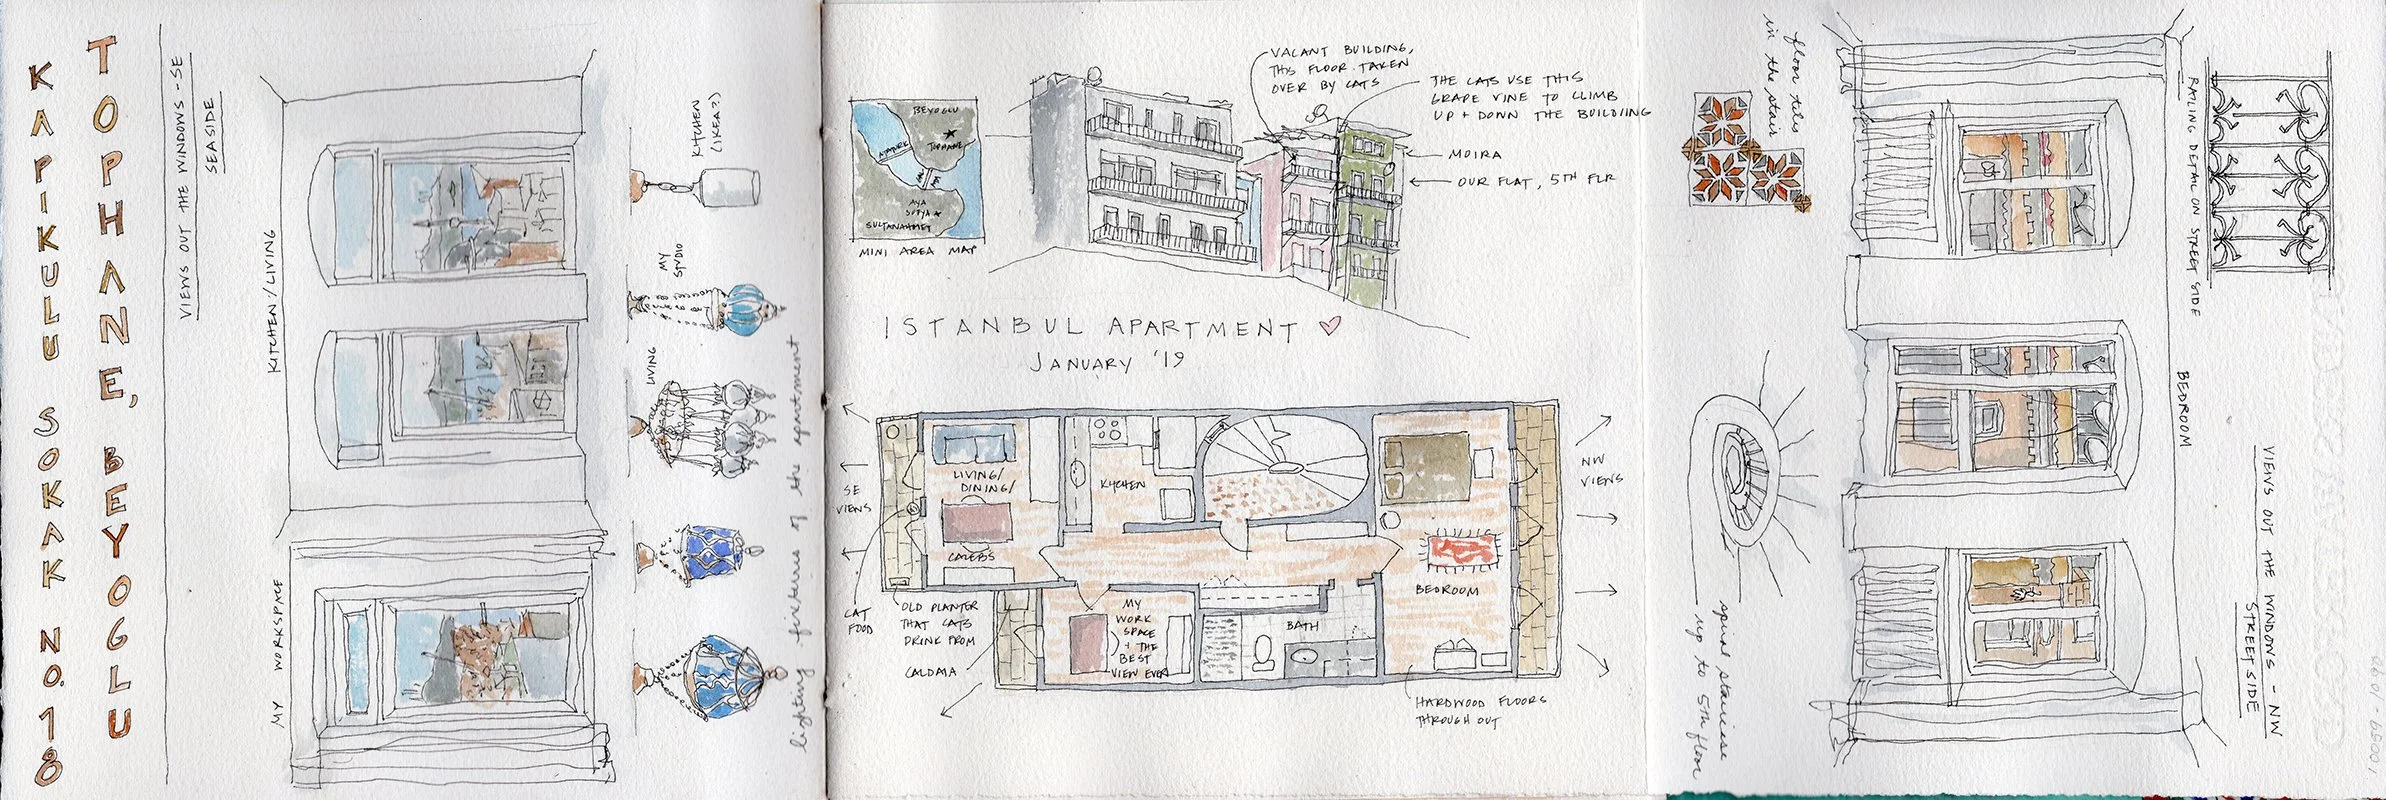 TOPHANE, BEYOGLU
KAPIKULU SOKAK NO. 18
VIEWS OUT THE WINDOWS - SE
SEASIDE
KITCHEN/LIVING
MY WORKSPACE
KITCHEN
(IKEA?)
MY
STUDIO
LIVING
lighting fixtures of the apartment
BEYOGLU
TOPHANE
ATATURK
AYA
SOFYA
SULTANAHMET
MINI AREA MAP
VACANT BUILDING,
THIS FLOOR TAKEN
OVER BY CATS
THE CATS USE THIS
GRAPE VINE TO CLIMB
UP + DOWN THE BUILDING
MOIRA
OUR FLAT, 5TH FLR
ISTANBUL APARTMENT
JANUARY '19
SE
VIEWS
LIVING/
DINING/
CALEB'S
KITCHEN
NW
VIEWS
BEDROOM
MY
WORK
SPACE
+ THE
BEST
VIEW EVER
BATH
CAT
FOOD
OLD PLANTER
THAT CATS
DRINK FROM
CALDAIA
HARDWOOD FLOORS
THROUGH OUT
floor tiles
in the stair
spiral staircase
up to 5th floor
RAILING DETAIL ON STREET SIDE
BEDROOM
VIEWS OUT THE WINDOWS - NW
STREET SIDE